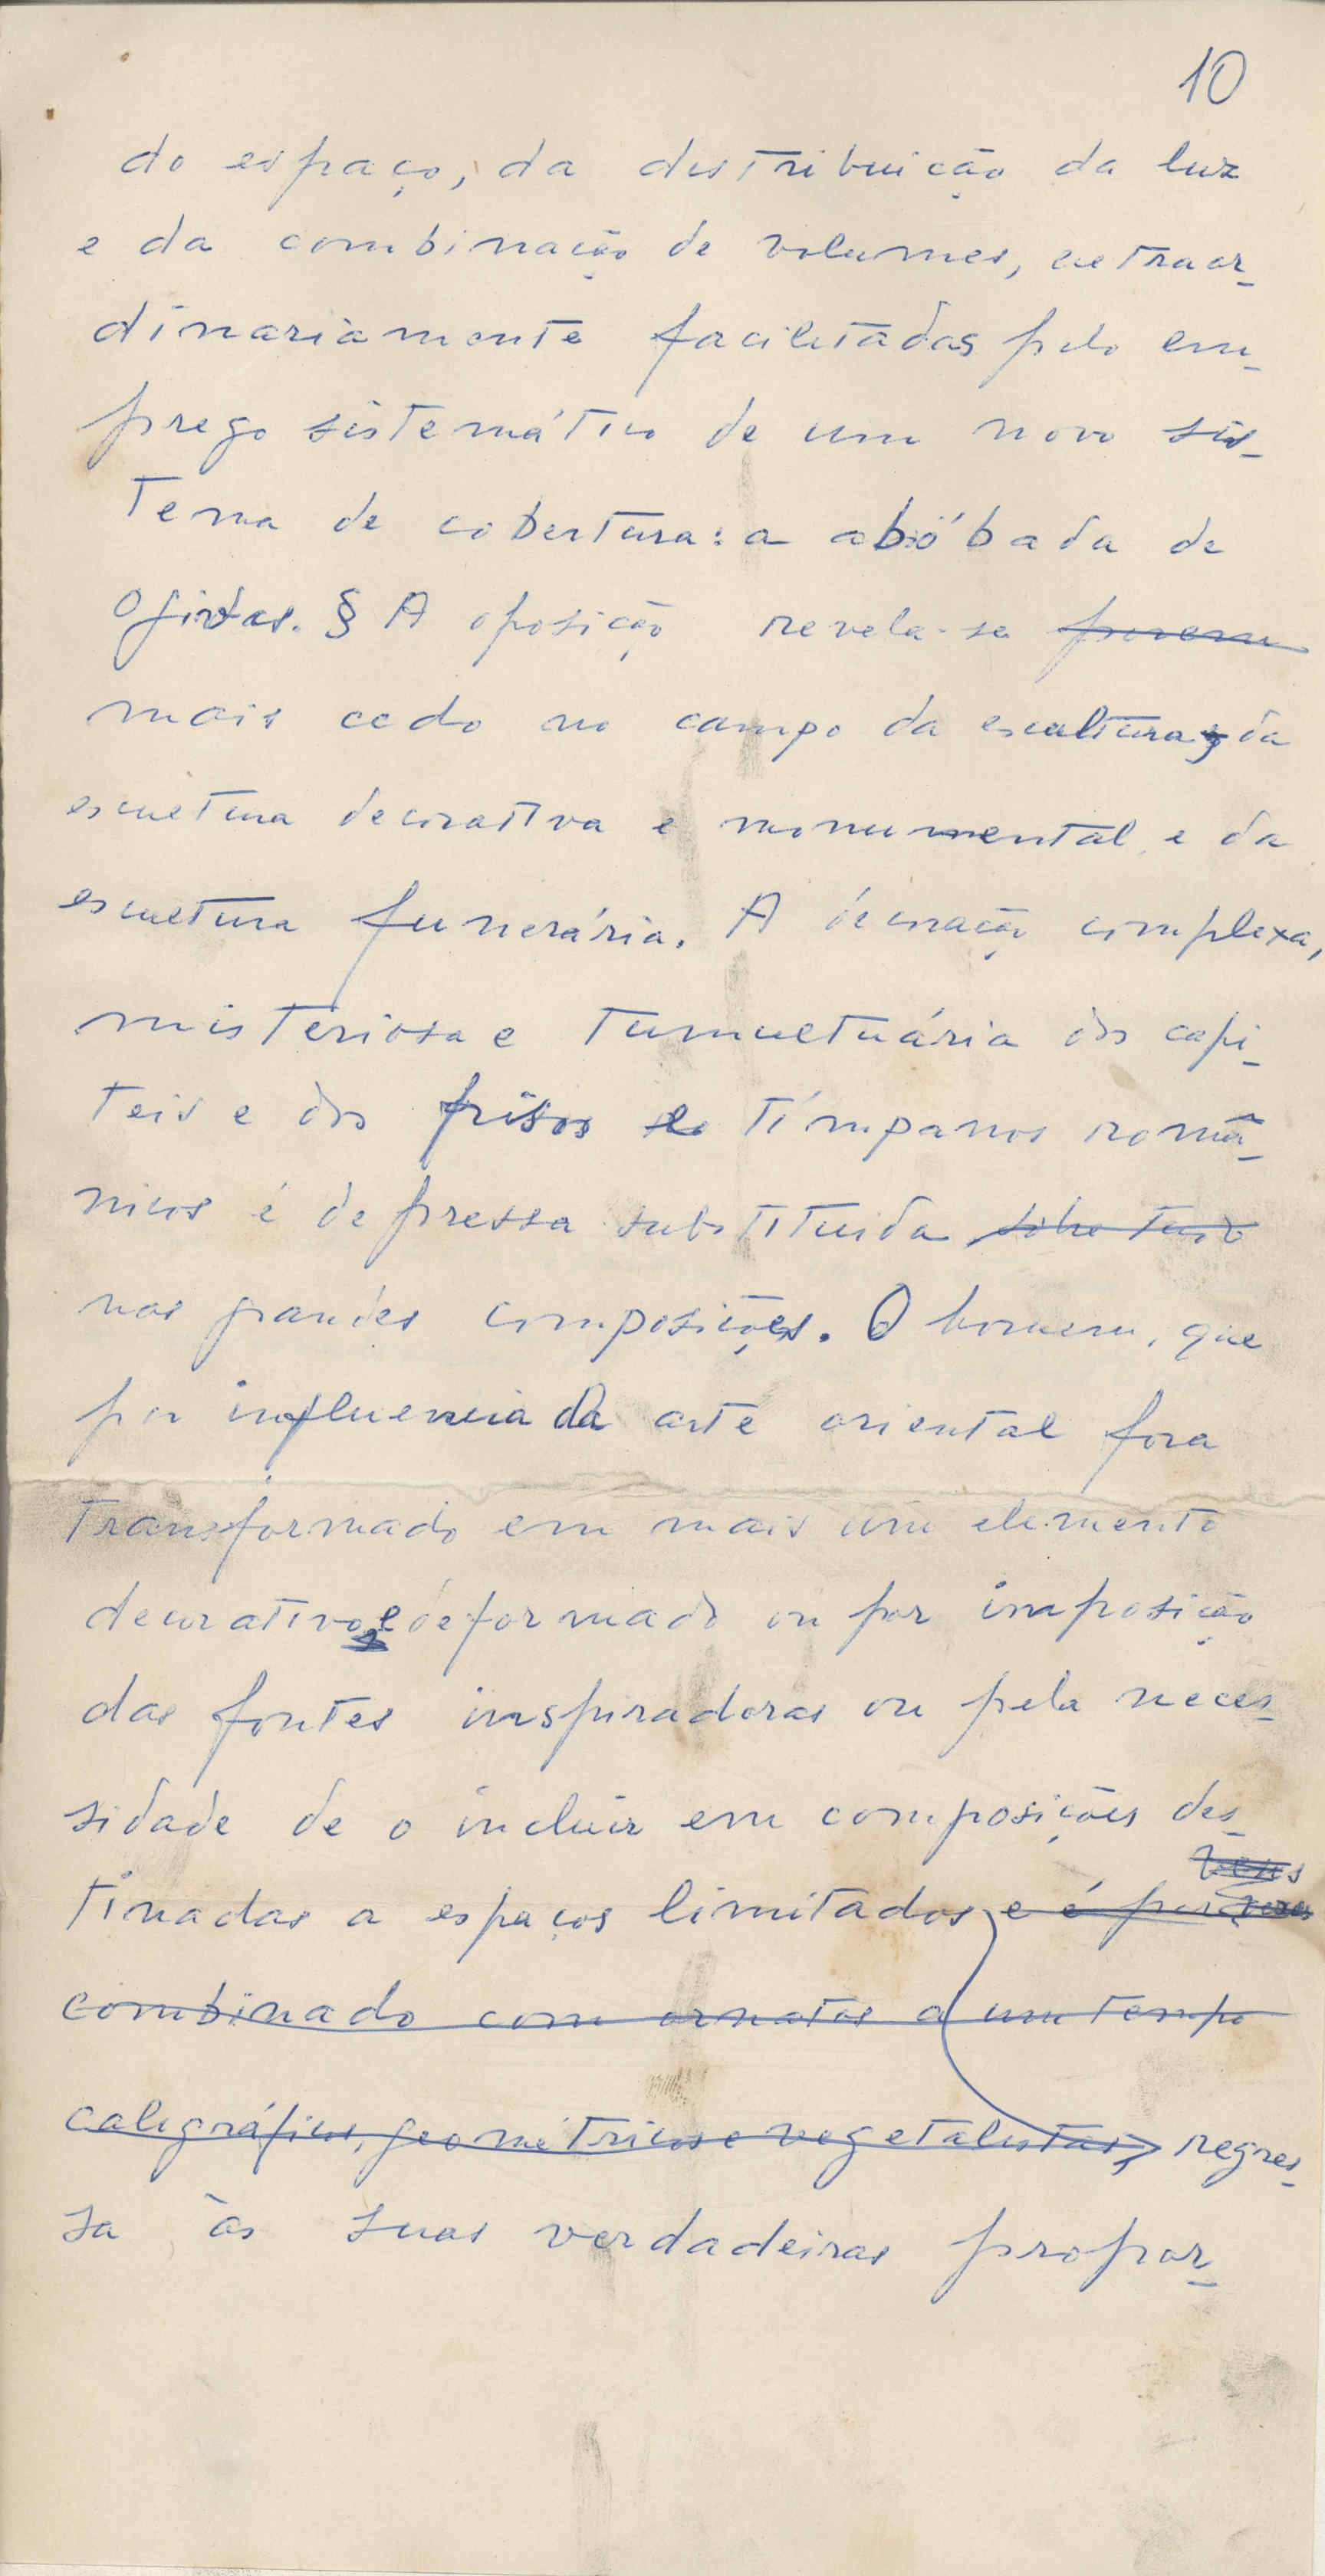 10
do espaço, da distribuição da luz
e da combinação de volumes, extraor-
dinariamente facilitadas pelo em-
prego sistemático de um novo sis-
tema de cobertura: a abóbada de
ogivas. § A oposição revela-se porem
mais cedo no campo da escultura, da
escultura decorativa e monumental e da
escultura funerária. A decoração complexa,
misteriosa e tumultuária dos capi-
teis e dos frisos e tímpanos romã-
nicos é depressa substituida sobretudo
nas grandes composições. O homem, que
por influencia da arte oriental fora
transformado em mais um elemento
decorativo e deformado ou por imposição
das fontes inspiradoras ou pela neces-
sidade de o incluir em composições des-
tinadas a espaços limitados, e é por vezes
combinado com ornatos a um tempo
caligráficos, geométricos e vegetalistas, regres-
sa às suas verdadeiras propor-